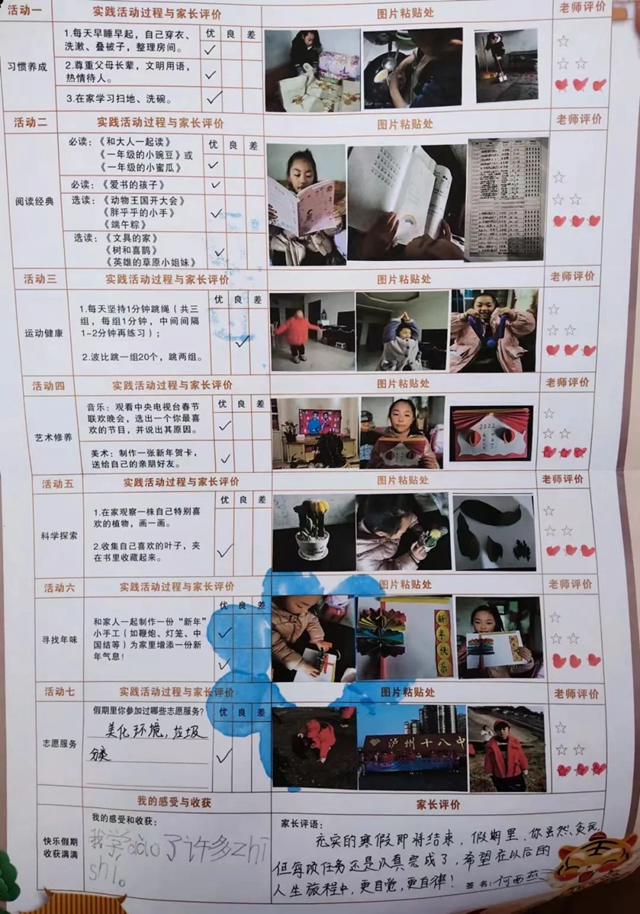 活动一 实践活动过程与家长评价 图片粘贴处 老师评价
习惯养成
1.每天早睡早起，自己穿衣、 优 良 差
洗漱、叠被子，整理房间。 ✓
2.尊重父母长辈，文明用语，
热情待人。 ✓
3.在家学习扫地、洗碗。 ✓
活动二 实践活动过程与家长评价 图片粘贴处 老师评价
阅读经典
必读：《和大人一起读》 优 良 差
《一年级的小豌豆》或
《一年级的小蜜瓜》 ✓
必读：《爱书的孩子》 ✓
选读：《动物王国开大会》
《胖乎乎的小手》
《端午粽》
选读：《文具的家》
《树和喜鹊》 ✓
《英雄的草原小姐妹》
活动三 实践活动过程与家长评价 图片粘贴处 老师评价
运动健康
1.每天坚持1分钟跳绳（共三 优 良 差
组，每组1分钟，中间间隔
1-2分钟再练习）；
2.波比跳一组20个，跳两组。 ✓
活动四 实践活动过程与家长评价 图片粘贴处 老师评价
艺术修养
音乐：观看中央电视台春节 优 良 差
联欢晚会，选出一个你最喜
欢的节目，并说出其原因。 ✓
美术：制作一张新年贺卡，
送给自己的亲朋好友。 ✓
2022
活动五 实践活动过程与家长评价 图片粘贴处 老师评价
科学探索
优 良 差
1.在家观察一株自己特别喜
欢的植物，画一画。
2.收集自己喜欢的叶子，夹
在书里收藏起来。 ✓
活动六 实践活动过程与家长评价 图片粘贴处 老师评价
寻找年味
优 良 差
和家人一起制作一份“新年”
小手工（如鞭炮、灯笼、中 ✓
国结等）为家里增添一份新
年气息！ ✓
新年快乐
活动七 实践活动过程与家长评价 图片粘贴处 老师评价
志愿服务
假期里你参加过哪些志愿服务? 优 良 差
美化环境，垃圾
分类 ✓
泸州十八中
我的感受与收获 家长评价
快乐假期
收获满满
我的感受和收获：
我学dao了许多zhi
shi。
家长评语：
充实的寒假即将结束，假期里，你虽然贪玩，
但每项任务还是认真完成了，希望在以后的
人生旅程中，更自觉，更自律！ 签书：